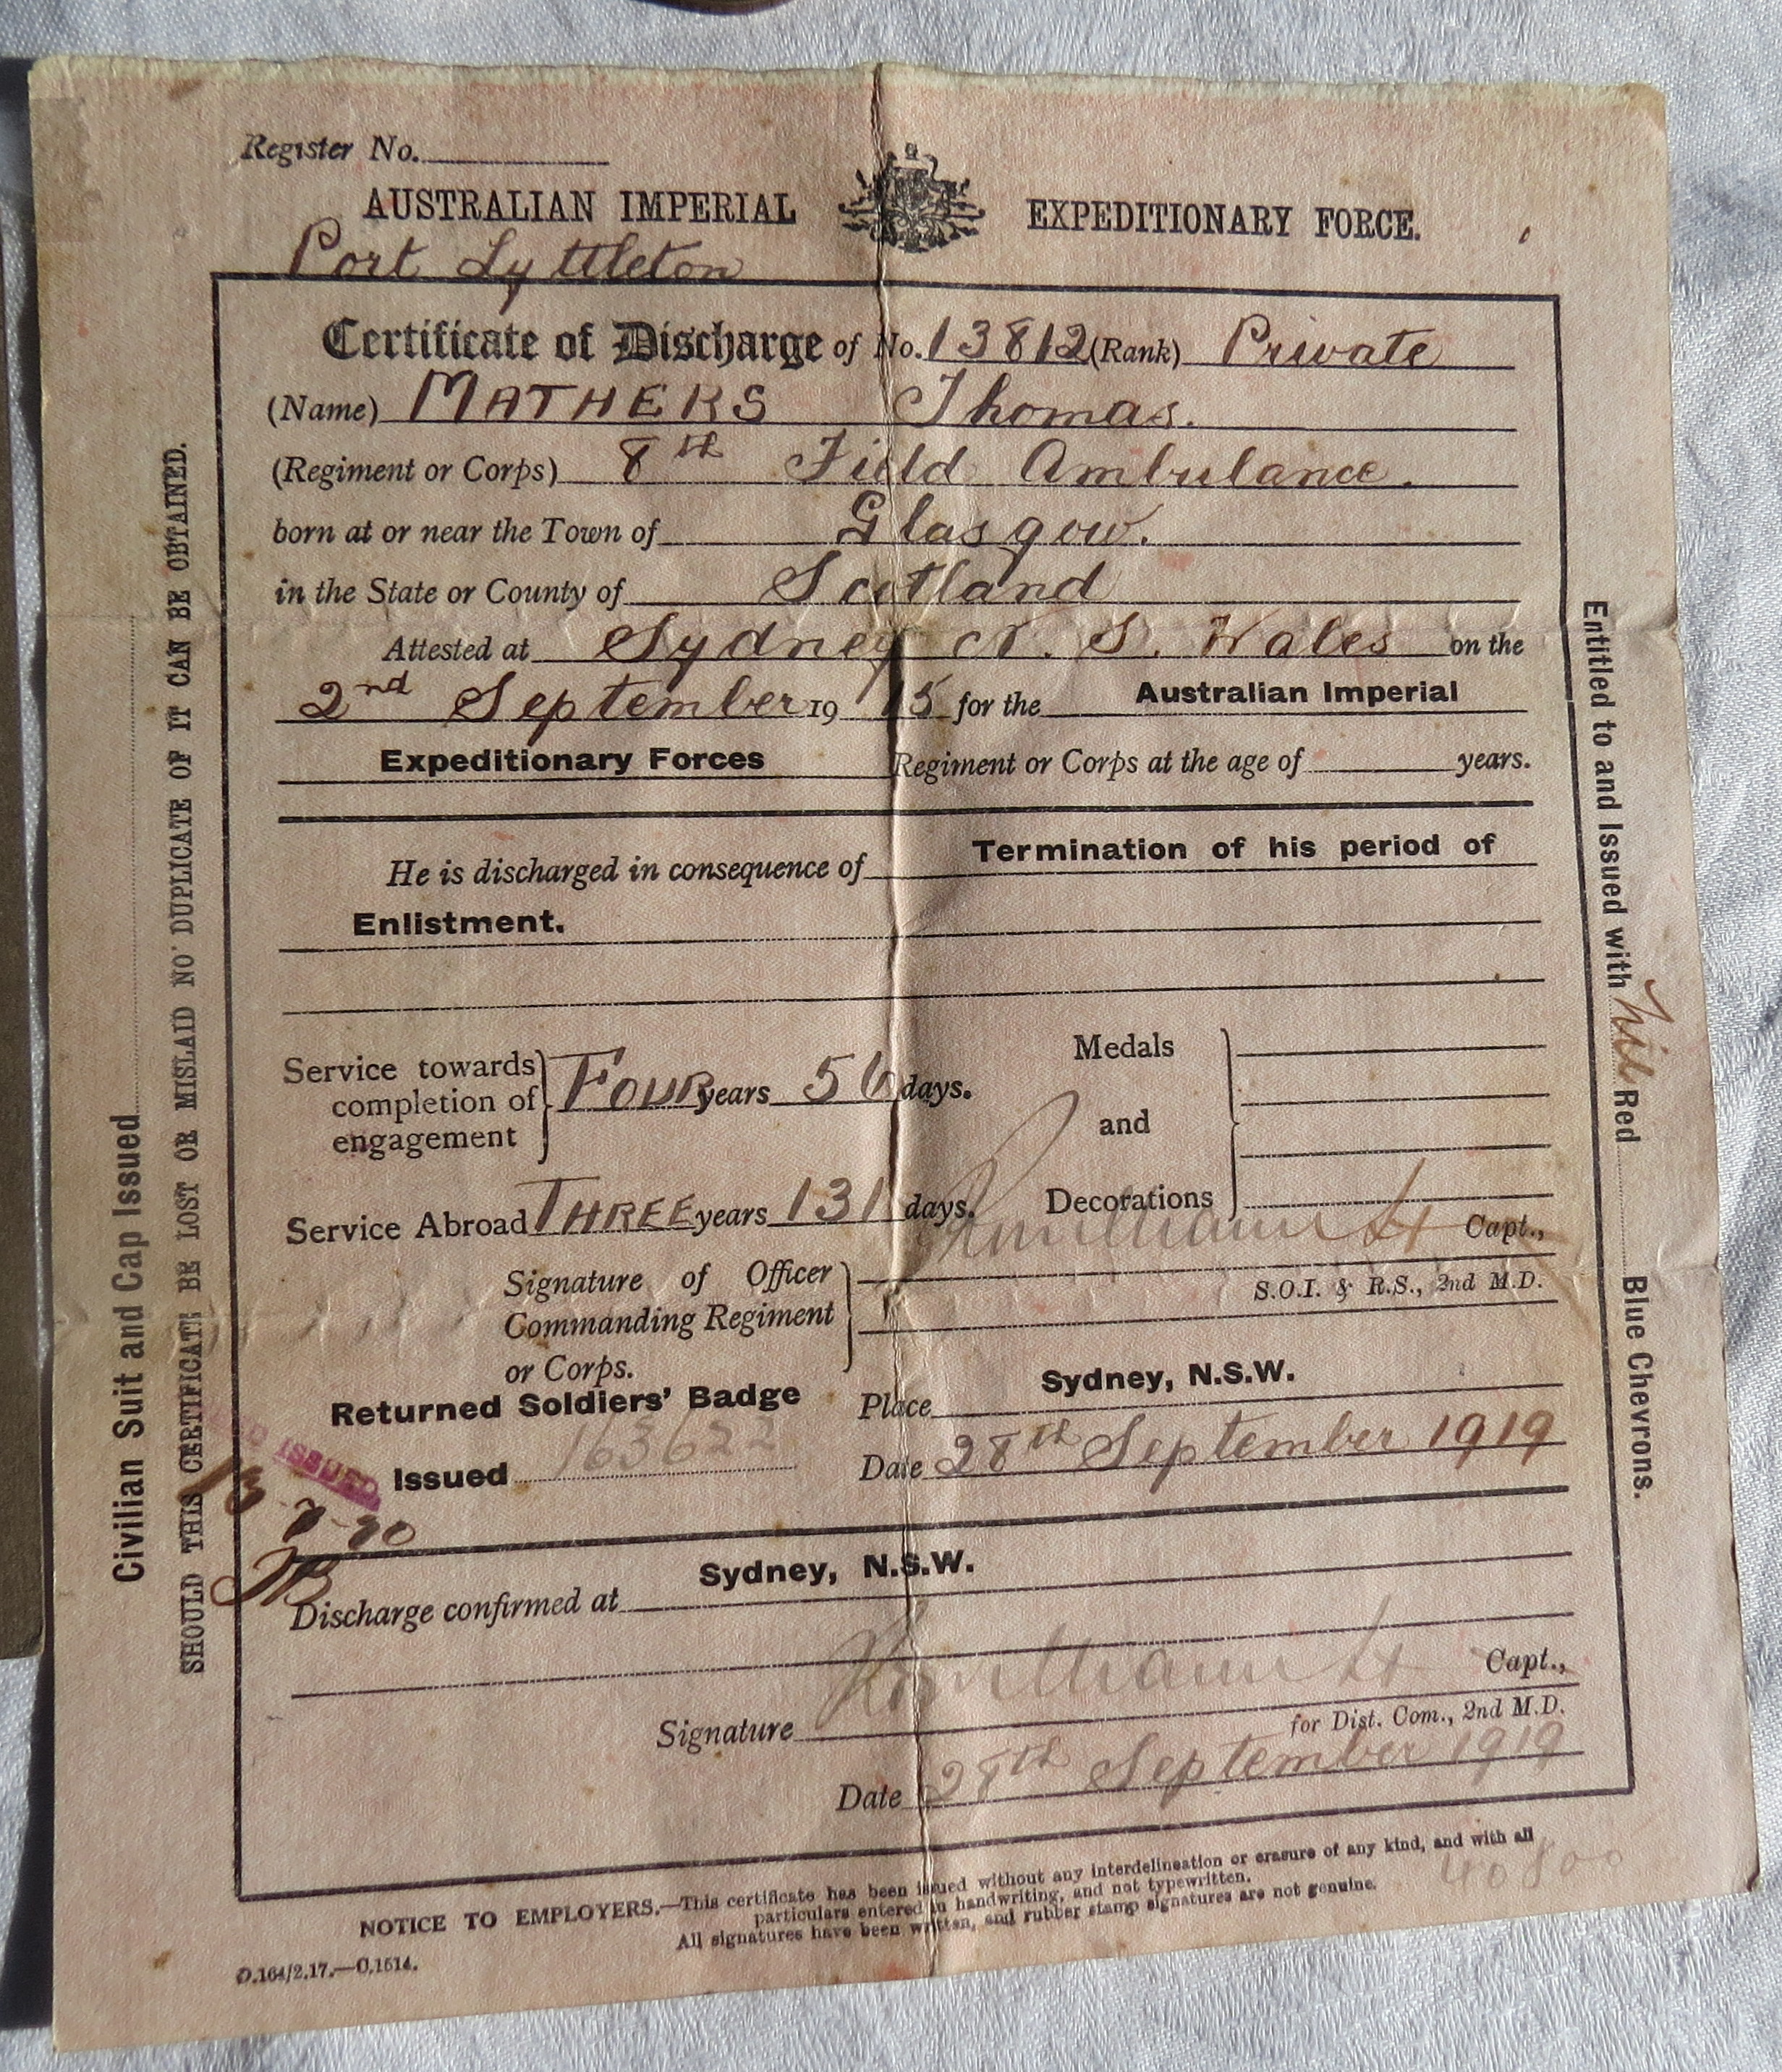 Register No.
AUSTRALIAN IMPERIAL EXPEDITIONARY FORCE.
Port Lyttleton
Certificate of Discharge of No. 13812 (Rank) Private
(Name) MATHERS Thomas.
(Regiment or Corps) 8th Field Ambulance.
born at or near the Town of Glasgow.
in the State or County of Scotland
Attested at Sydney N. S. Wales on the
2nd September 1915 for the Australian Imperial
Expeditionary Forces Regiment or Corps at the age of years.
He is discharged in consequence of Termination of his period of
Enlistment.
Service towards completion of engagement } FOUR years 56 days.
Service Abroad THREE years 131 days.
Medals and Decorations
Capt.,
Signature of Officer Commanding Regiment or Corps.
S.O.I. & R.S., 2nd M.D.
Returned Soldiers' Badge
Issued 163622
Place Sydney, N.S.W.
Date 28th September 1919
ISSUED
Discharge confirmed at Sydney, N.S.W.
Capt.,
Signature
for Dist. Com., 2nd M.D.
Date 28th September 1919
NOTICE TO EMPLOYERS.—This certificate has been issued without any interdelineation or erasure of any kind, and with all
particulars entered in handwriting, and not typewritten.
All signatures have been written, and rubber stamp signatures are not genuine.
D.164/2.17.—C.1514.
Civilian Suit and Cap Issued
SHOULD THIS CERTIFICATE BE LOST OR MISLAID NO DUPLICATE OF IT CAN BE OBTAINED.
Entitled to and Issued with Nil Red Blue Chevrons.